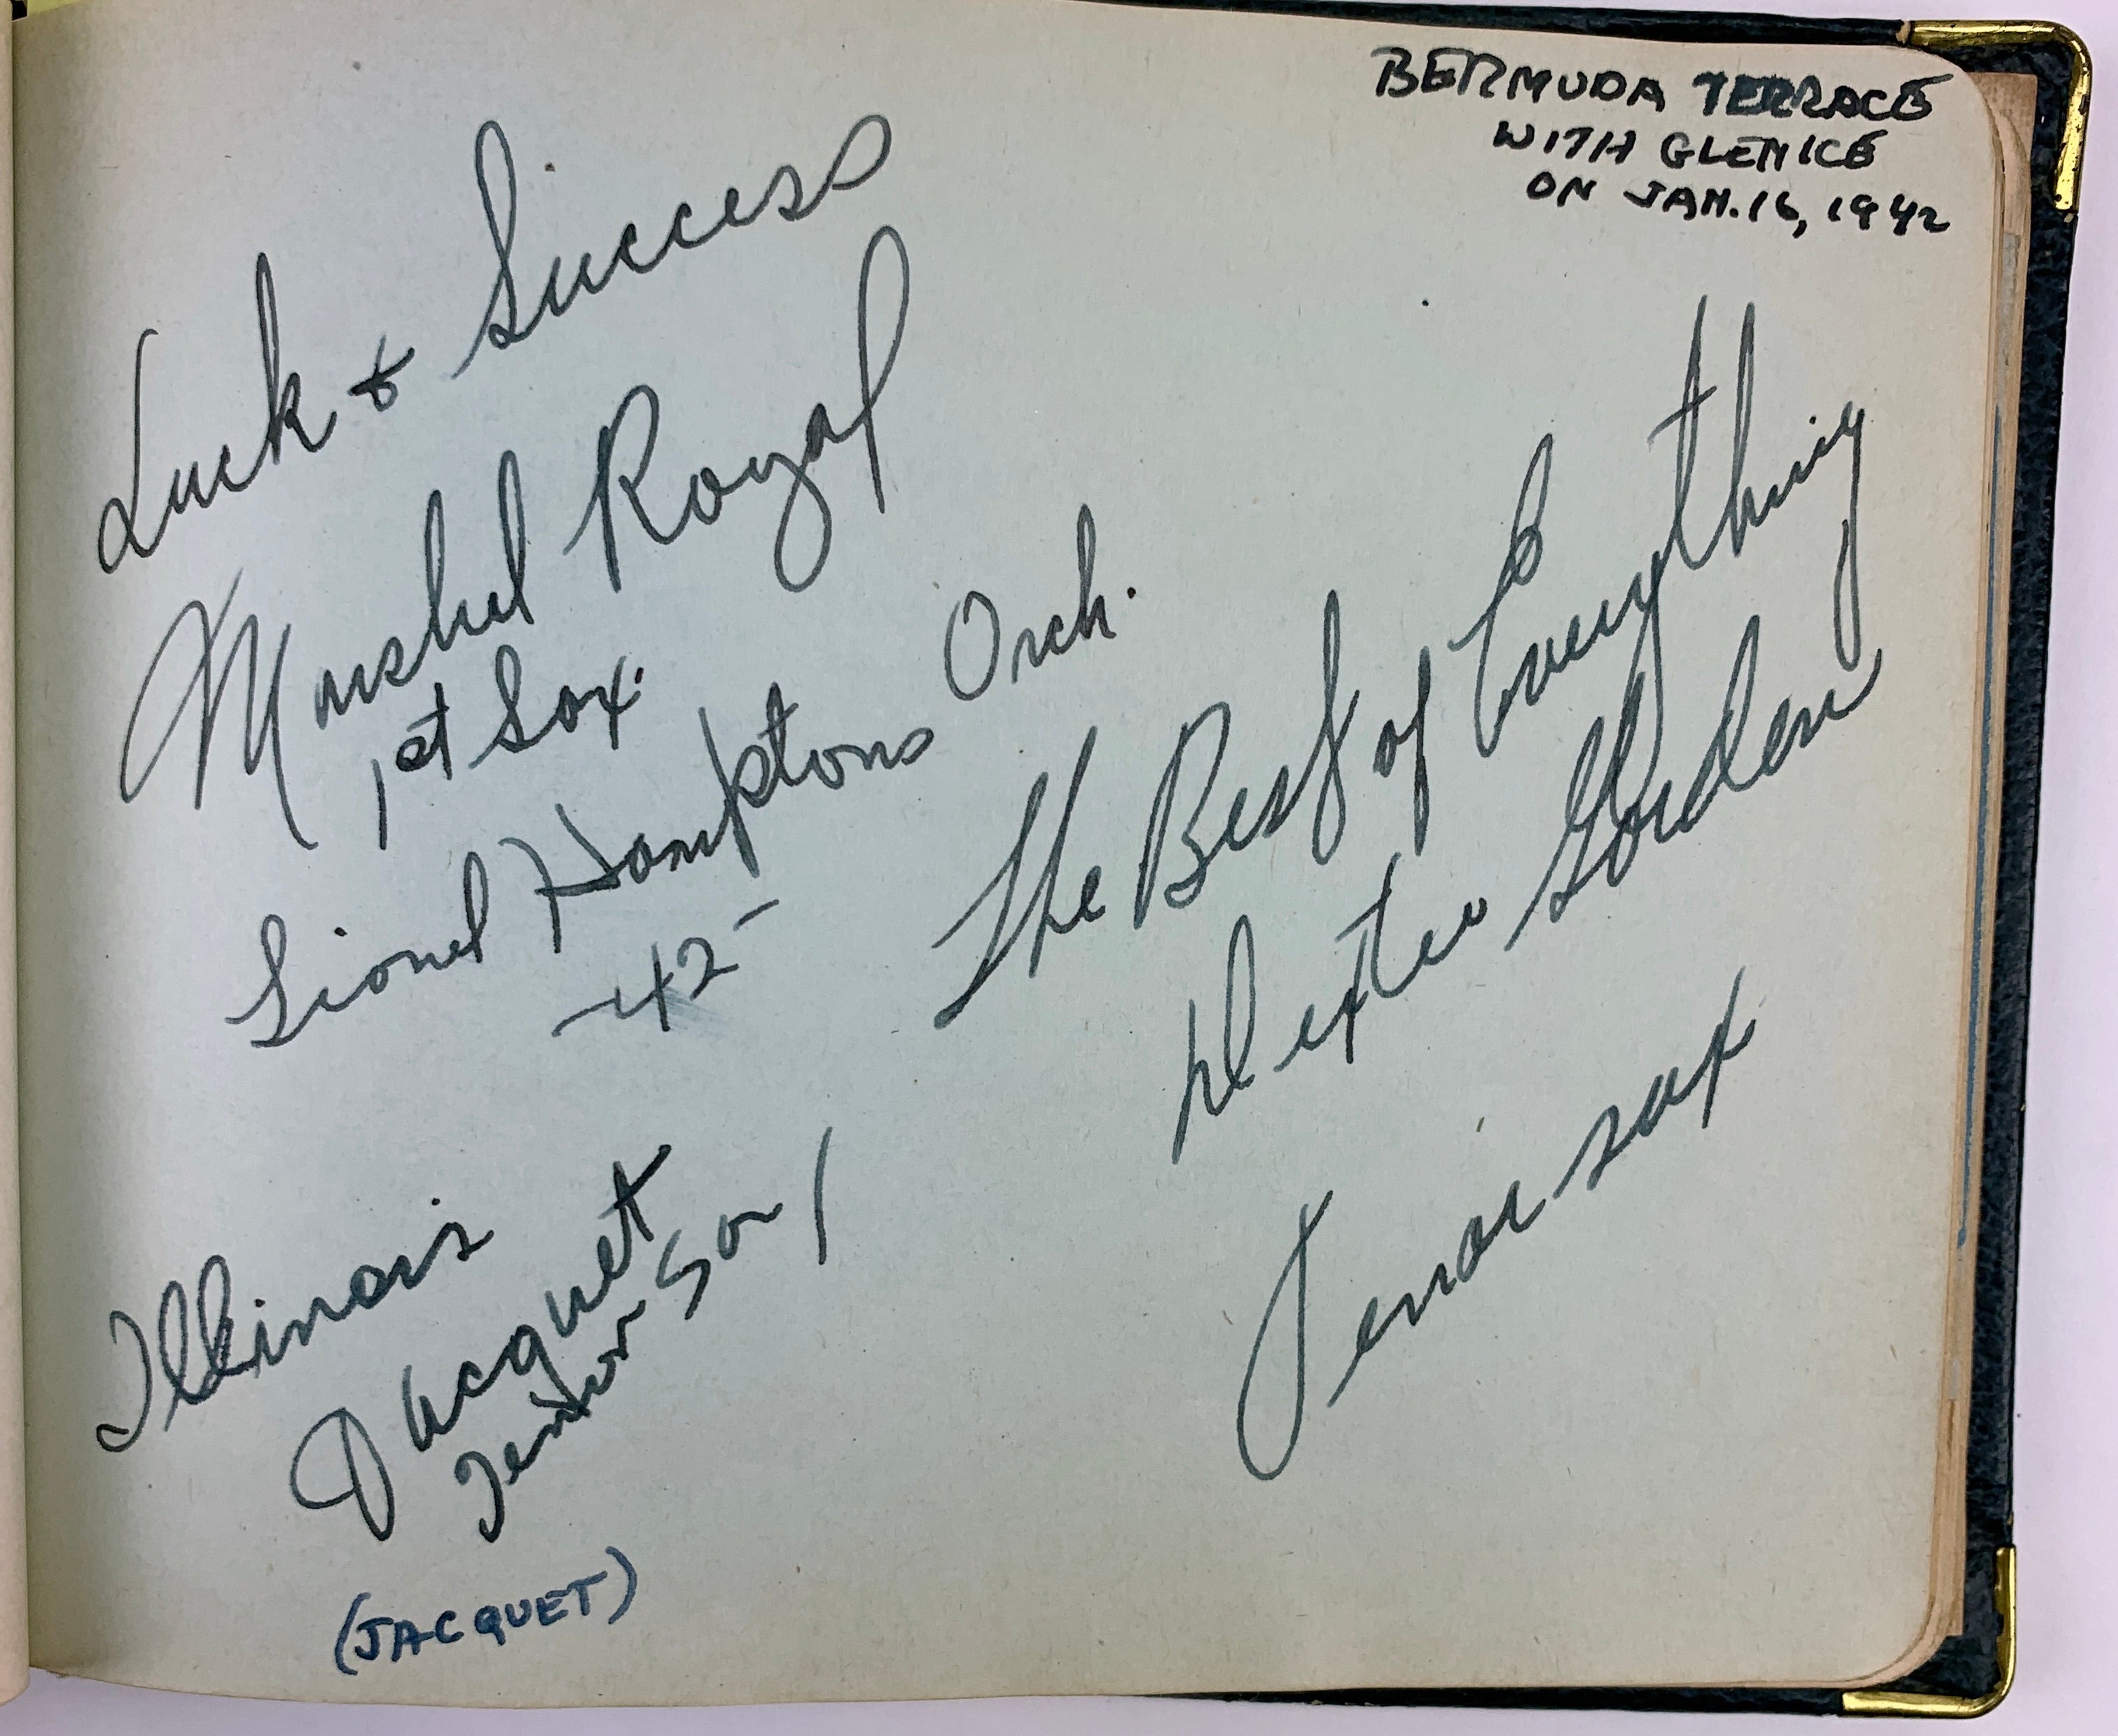 BERMUDA TERRACE
WITH GLENICE
ON JAN. 16, 1942
Luck & Success
Marshal Royal
1st Sax.
Lionel Hamptons Orch.
-42-
The Best of Everything
Dexter Gorden
Tenor sax
Illinois
Jacquet
Tenor Sax
(JACQUET)